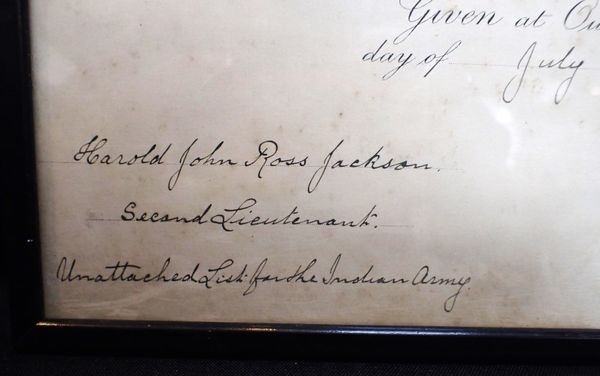 Given at Ou
day of July
Harold John Ross Jackson.
Second Lieutenant.
Unattached List for the Indian Army.